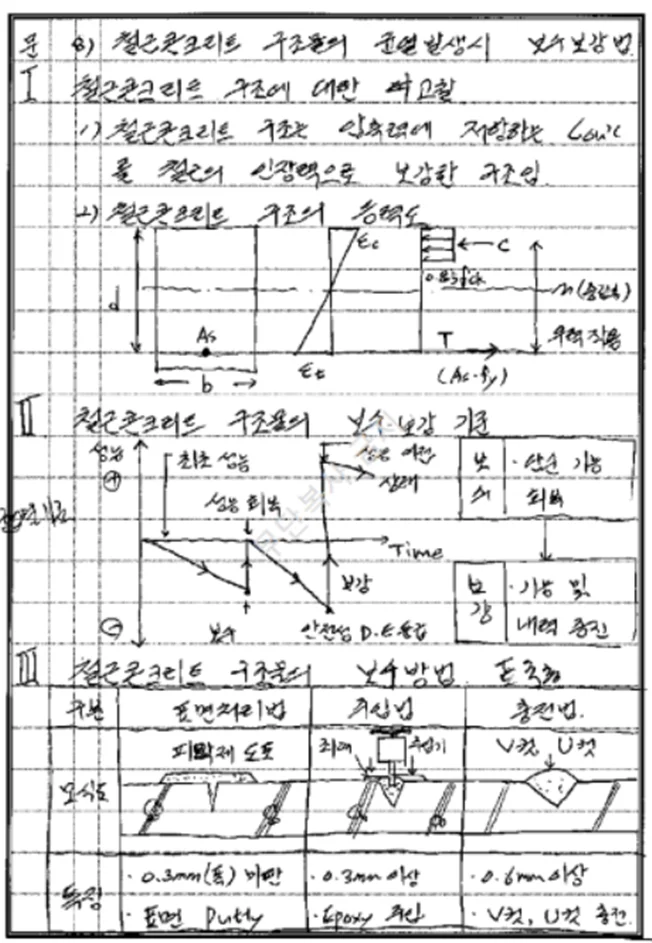 문 8) 철근콘크리트 구조물의 균열발생시 보수보강법
I 철근콘크리트 구조에 대한
1) 철근콘크리트 구조는 압축력에 저항하는 Conc
를 철근의 인장력으로 보강한 구조임.
2) 철근콘크리트 구조의 응력도
εc
C
0.85fck
d
n (중립축)
As
T
우력 작용
b
εt
(As·fy)
II 철근콘크리트 구조물의 보수 보강 기준
성능
⊕
최초 성능
성능 회복
상태
보수
· 단순 기능
회복
Time
보강
· 기능 및
내력 증진
⊖
보수
보강
안전성
무단복제 금지
III 철근콘크리트 구조물의 보수방법
구분 표면처리법 주입법 충전법.
모식도
피막제 도포
주입기
V컷, U컷
특징
· 0.3mm(폭) 미만
· 0.3mm 이상
· 0.6mm 이상
· 표면 Putty
· Epoxy 주입
· V컷, U컷 충전.